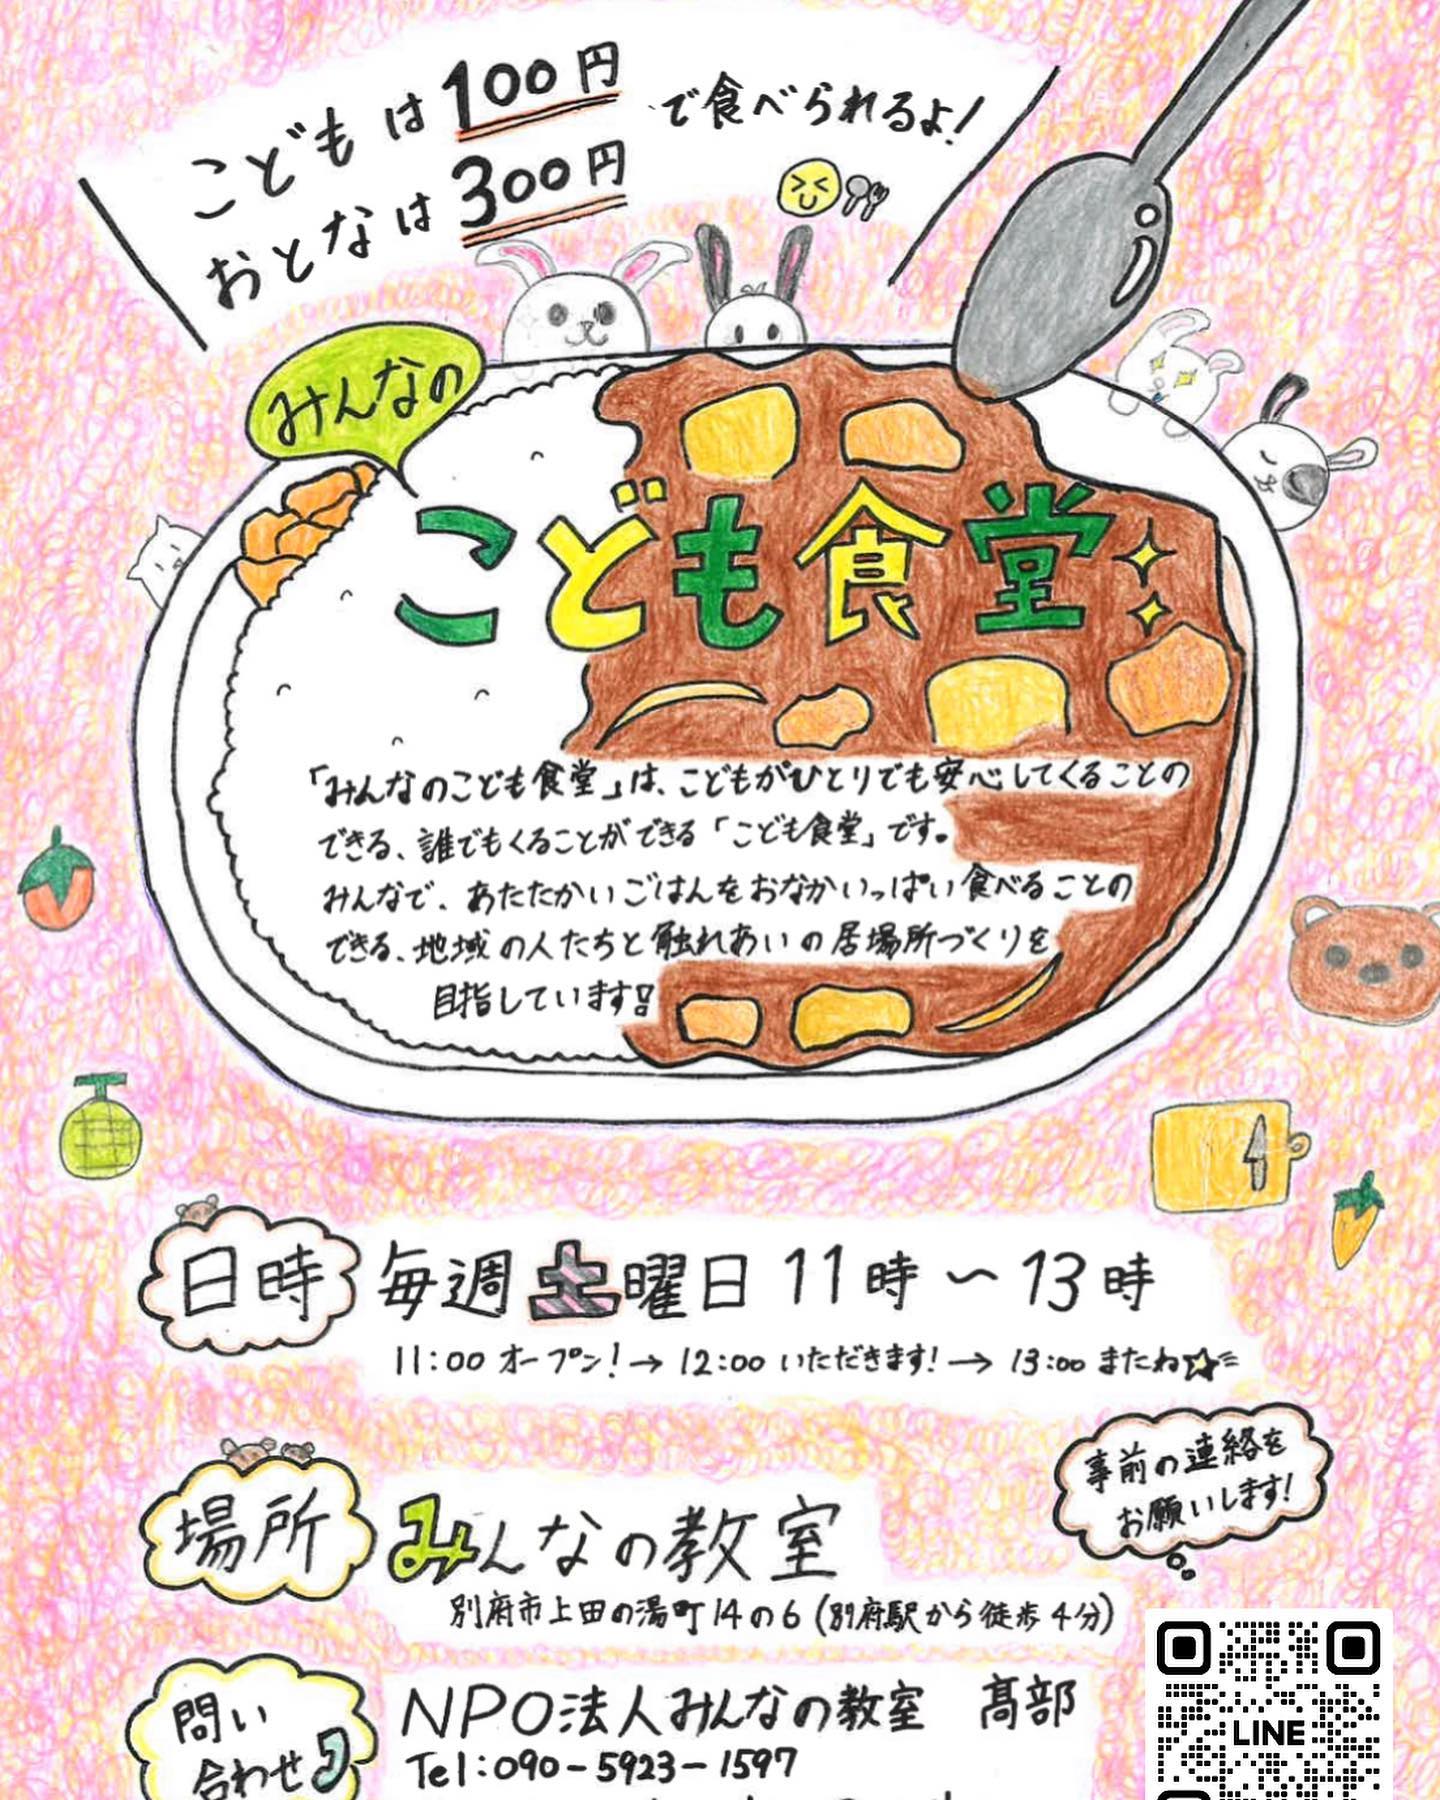 こどもは100円
おとなは300円
で食べられるよ!
みんなの
こども食堂
「みんなのこども食堂」は、こどもがひとりでも安心してくることの
できる、誰でもくることができる「こども食堂」です。
みんなで、あたたかいごはんをおなかいっぱい食べることの
できる、地域の人たちと触れあいの居場所づくりを
目指しています!!
日時
毎週土曜日 11時～13時
11:00 オープン!→ 12:00 いただきます!→ 13:00 またね☆
事前の連絡を
お願いします!
場所
みんなの教室
別府市上田の湯町14の6(別府駅から徒歩4分)
問い
合わせ
NPO法人みんなの教室 髙部
Tel:090-5923-1597
LINE